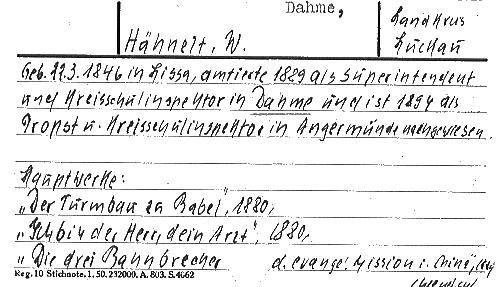 Dahme,
Landkreis
Luckau
Hähnelt, W.
Geb. 22.3.1846 in Lissa, amtierte 1889 als Superintendent
und Kreisschulinspektor in Dahme und ist 1894 als
Propst u. Kreisschulinspektor in Angermünde nachgewiesen.
Hauptwerke:
„Der Turmbau zu Babel", 1880,
„Ich bin der Herr, dein Arzt", 1880,
„Die drei Bahnbrecher d. evangel. Mission i. China,
Reg. 10 Stichnote. 1. 50. 232000. A. 803. S. 4662